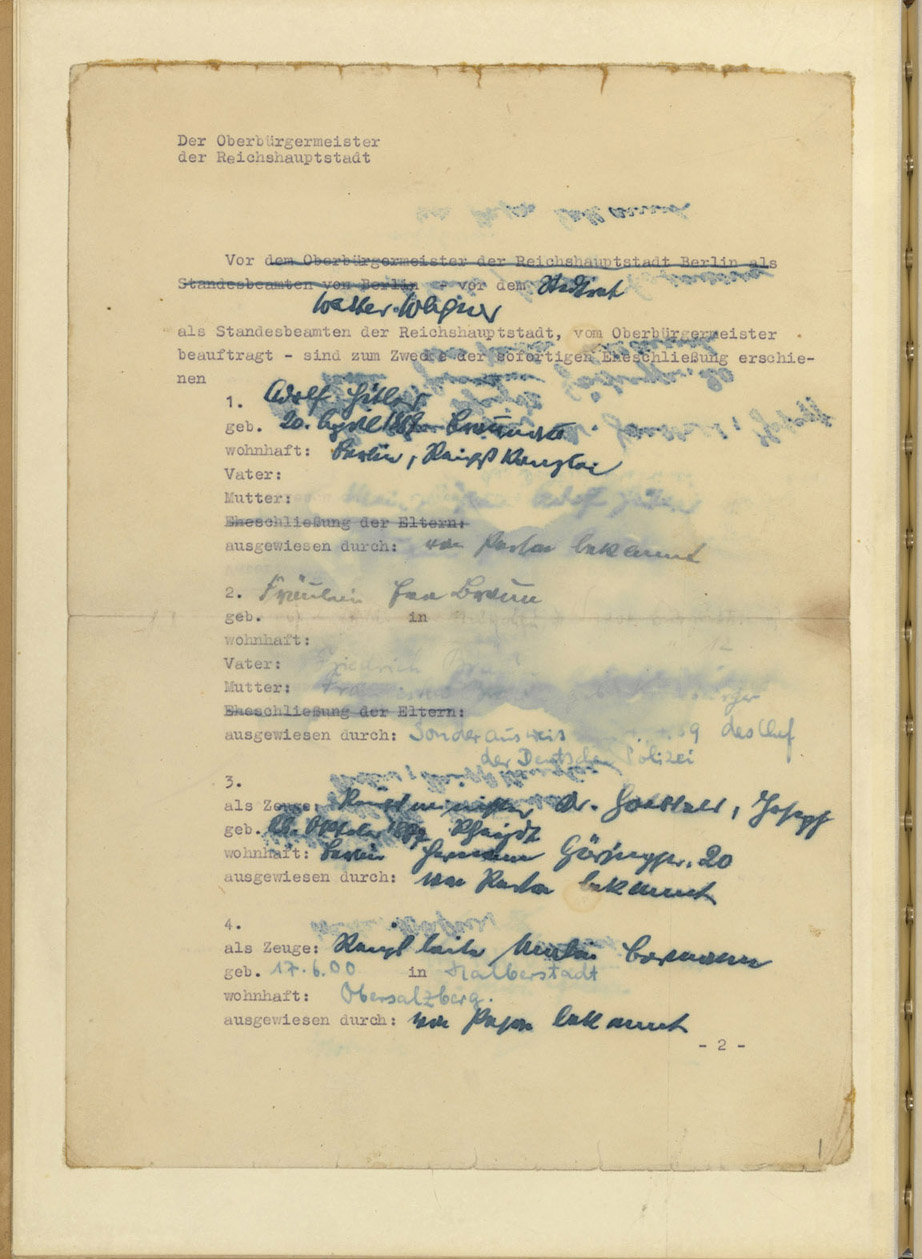 Der Oberbürgermeister
der Reichshauptstadt
Vor dem Oberbürgermeister der Reichshauptstadt Berlin als
Standesbeamten von Berlin - vor dem Stadtrat
Walter Wagner
als Standesbeamten der Reichshauptstadt, vom Oberbürgermeister
beauftragt - sind zum Zwecke der sofortigen Eheschließung erschie-
nen
1. Adolf Hitler
geb. 20. April 1889 Braunau
wohnhaft: Berlin, Reichskanzlei
Vater:
Mutter:
Eheschließung der Eltern:
ausgewiesen durch: von Person bekannt
2. Fräulein Eva Braun
geb. in
wohnhaft:
Vater: Friedrich Braun
Mutter:
Eheschließung der Eltern:
ausgewiesen durch: Sonderausweis des Chef
der Deutschen Polizei
3.
als Zeuge: Reichsminister Dr. Goebbels, Josef
geb. Oktober 1897 Rheydt
wohnhaft: Berlin Hermann Göringstr. 20
ausgewiesen durch: von Person bekannt
4.
als Zeuge: Reichsleiter Martin Bormann
geb. 17.6.00 in Halberstadt
wohnhaft: Obersalzberg.
ausgewiesen durch: von Person bekannt
- 2 -